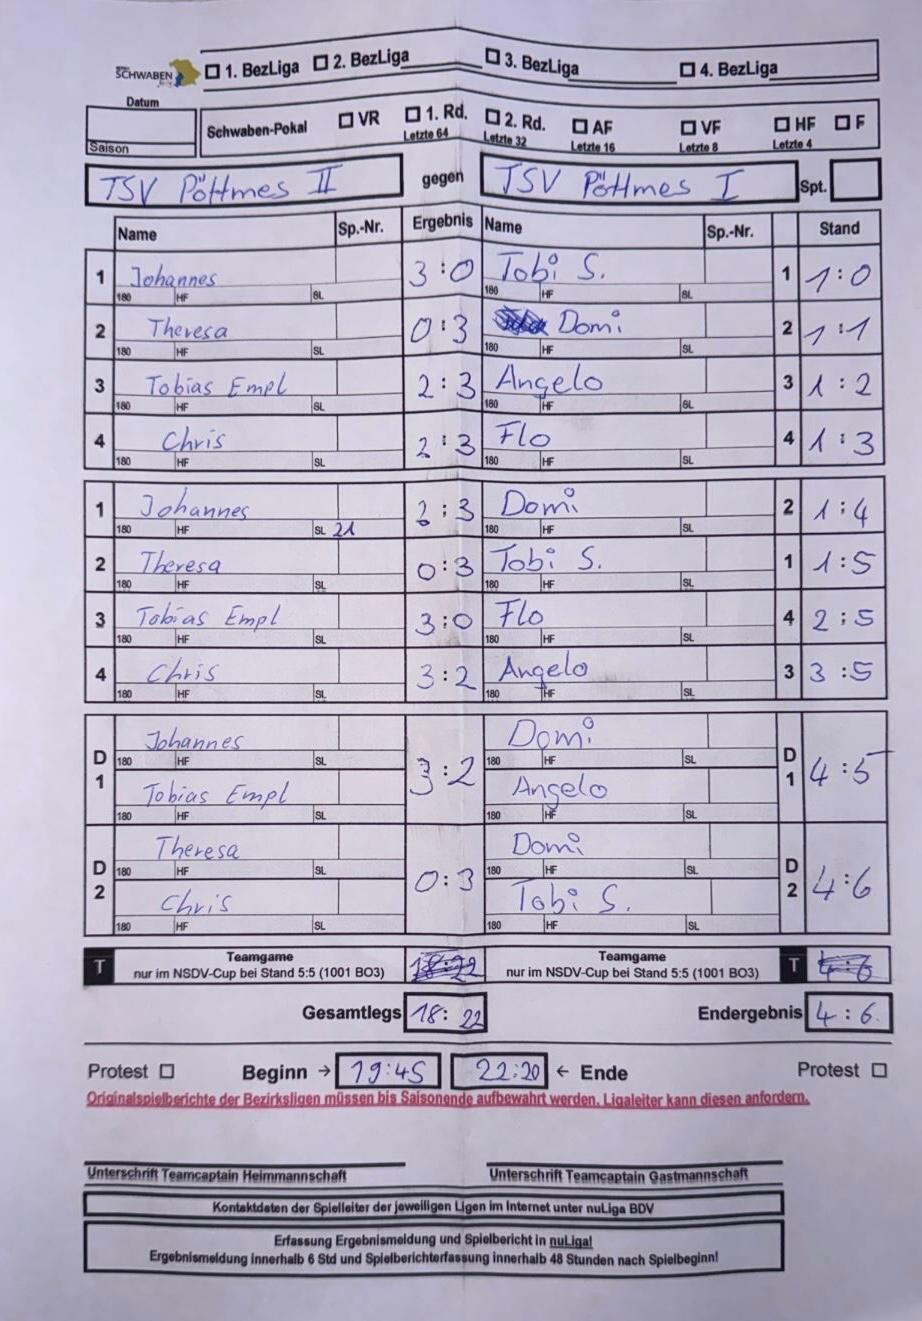 SCHWABEN
☐ 1. BezLiga ☐ 2. BezLiga ☐ 3. BezLiga ☐ 4. BezLiga
Datum
Saison
Schwaben-Pokal ☐ VR ☐ 1. Rd. ☐ 2. Rd. ☐ AF ☐ VF ☐ HF ☐ F
Letzte 64 Letzte 32 Letzte 16 Letzte 8 Letzte 4
TSV Pöttmes II gegen TSV Pöttmes I Spt.
Name Sp.-Nr. Ergebnis Name Sp.-Nr. Stand
1 Johannes 3:0 Tobi S. 1 1:0
180 HF SL 180 HF SL
2 Theresa 0:3 Domi 2 1:1
180 HF SL 180 HF SL
3 Tobias Empl 2:3 Angelo 3 1:2
180 HF SL 180 HF SL
4 Chris 2:3 Flo 4 1:3
180 HF SL 180 HF SL
1 Johannes 2:3 Domi 2 1:4
180 HF SL 21 180 HF SL
2 Theresa 0:3 Tobi S. 1 1:5
180 HF SL 180 HF SL
3 Tobias Empl 3:0 Flo 4 2:5
180 HF SL 180 HF SL
4 Chris 3:2 Angelo 3 3:5
180 HF SL 180 HF SL
D1 Johannes 3:2 Domi D1 4:5
180 HF SL 180 HF SL
Tobias Empl Angelo
180 HF SL 180 HF SL
D2 Theresa 0:3 Domi D2 4:6
180 HF SL 180 HF SL
Chris Tobi S.
180 HF SL 180 HF SL
T Teamgame 18:22 Teamgame T 4:6
nur im NSDV-Cup bei Stand 5:5 (1001 BO3) nur im NSDV-Cup bei Stand 5:5 (1001 BO3)
Gesamtlegs 18:22 Endergebnis 4:6.
Protest ☐ Beginn → 19:45 22:20 ← Ende Protest ☐
Originalspielberichte der Bezirksligen müssen bis Saisonende aufbewahrt werden. Ligaleiter kann diesen anfordern.
Unterschrift Teamcaptain Heimmannschaft Unterschrift Teamcaptain Gastmannschaft
Kontaktdaten der Spielleiter der jeweiligen Ligen im Internet unter nuLiga BDV
Erfassung Ergebnismeldung und Spielbericht in nuLiga!
Ergebnismeldung innerhalb 6 Std und Spielberichterfassung innerhalb 48 Stunden nach Spielbeginn!